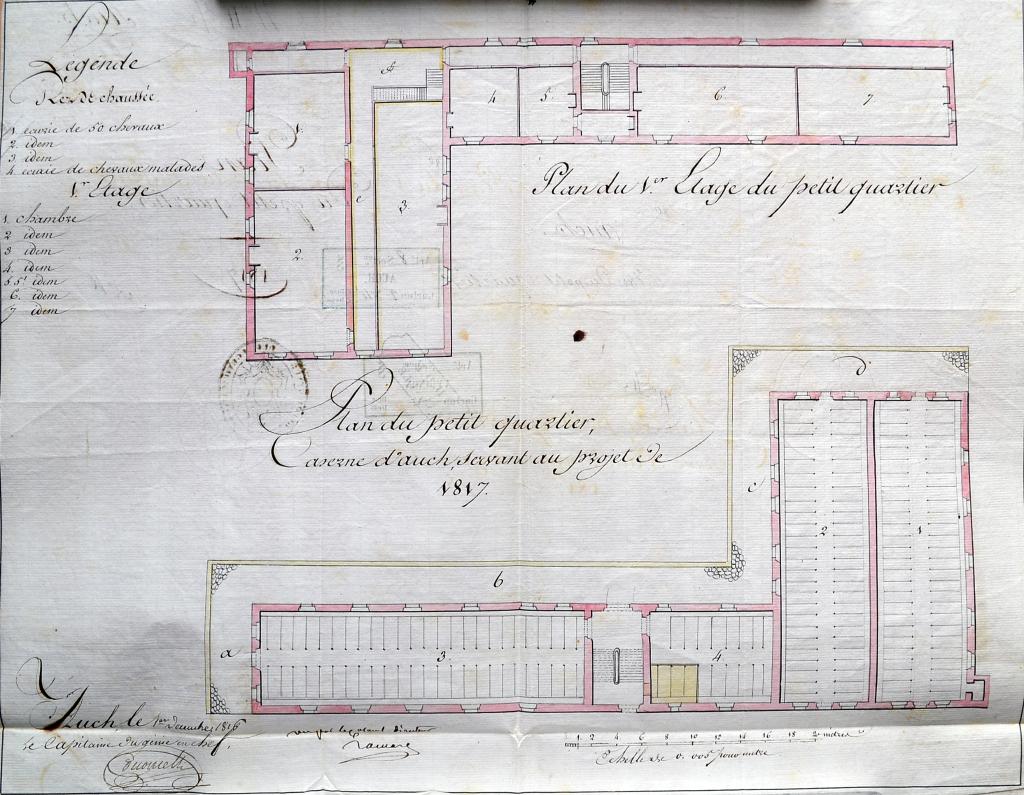 Légende
Rez de chaussée.
1. écurie de 50 chevaux
2. idem
3. idem
4. écurie de chevaux malades
1.er Etage
1. chambre
2 idem
3 idem
4. idem
5. 5' idem
6. idem
7 idem
A
1.
2.
3.
c
4
5.
6.
7
Plan du 1.er Etage du petit quartier
Plan du petit quartier,
Caserne d'auch, servant au projet de
1817.
d
c
b
a
2
1
3.
4
Auch, le 1er Décembre 1816
le Capitaine du génie en chef,
vu par le colonel Directeur
1 2 4 6 8 10 12 14 16 18 20 mètres
Echelle de 0.005 pour mètre